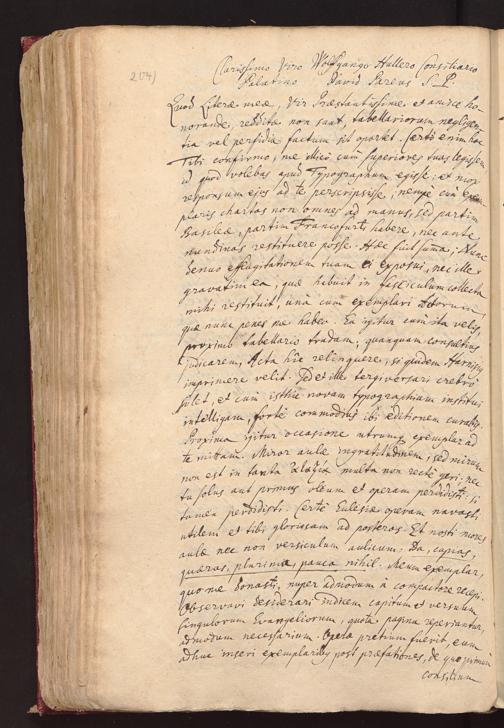 204)
Clarissimo Viro Wolfgango Hallero Consiliario
Palatino David Pareus S. P.
Quod Literæ meæ, Vir Præstantissime et amice ho-
norande, redditæ non sunt, tabellariorum negligen
tia vel perfidia factum sit oportet. Certe enim hoc
Tibi confirmo, me illico cum superiores tuas legissem
id quod volebas apud Typographum egisse: et mox
responsum ejus ad te perscripsisse, nempe eum exem
plaris chartas non omnes ad manus, sed partim
Basileæ, partim Francofurti habere, nec ante
nundinas restituere posse. Hæc fuit summa; Nunc
denuo efflagitationem tuam ei exposui, nec ille
gravatim ea, quæ habuit in fasciculum collecta
mihi restituit, una cum exemplari
quæ nunc penes me habeo. Ea igitur cum ita velis,
proximo tabellario tradam; quanquam consultius
judicarem, Acta hic relinquere, siquidem Harnisius
imprimere velit. Sed et ille tergiversari crebro
solet, et cum isthic novam typographiam institui
intelligam, forte commodius ibi editionem curabis.
Proxima igitur occasione utrumque exemplar ad
te mittam. Miror aulæ ingratitudinem, sed mirum
non est in tanta multa non recte geri: nec
tu solus aut primus oleum et operam perdidisti: si
tamen perdidisti. Certe Ecclesiæ operam navasti
utilem et tibi gloriosam ad posteros. Et nosti mores
aulæ nec non versiculum aulicum: Da, capias,
quæras, plurima, pauca, nihil. Meum exemplar,
quo me donasti, nuper admodum a compactore recepi.
Observavi desiderari indicem capitum et versuum
singulorum Evangeliorum, quota pagina reperiantur,
admodum necessarium. Operæ pretium fuerit, eum
adhuc inseri exemplaribus post præfationes, de quo primum
consilium